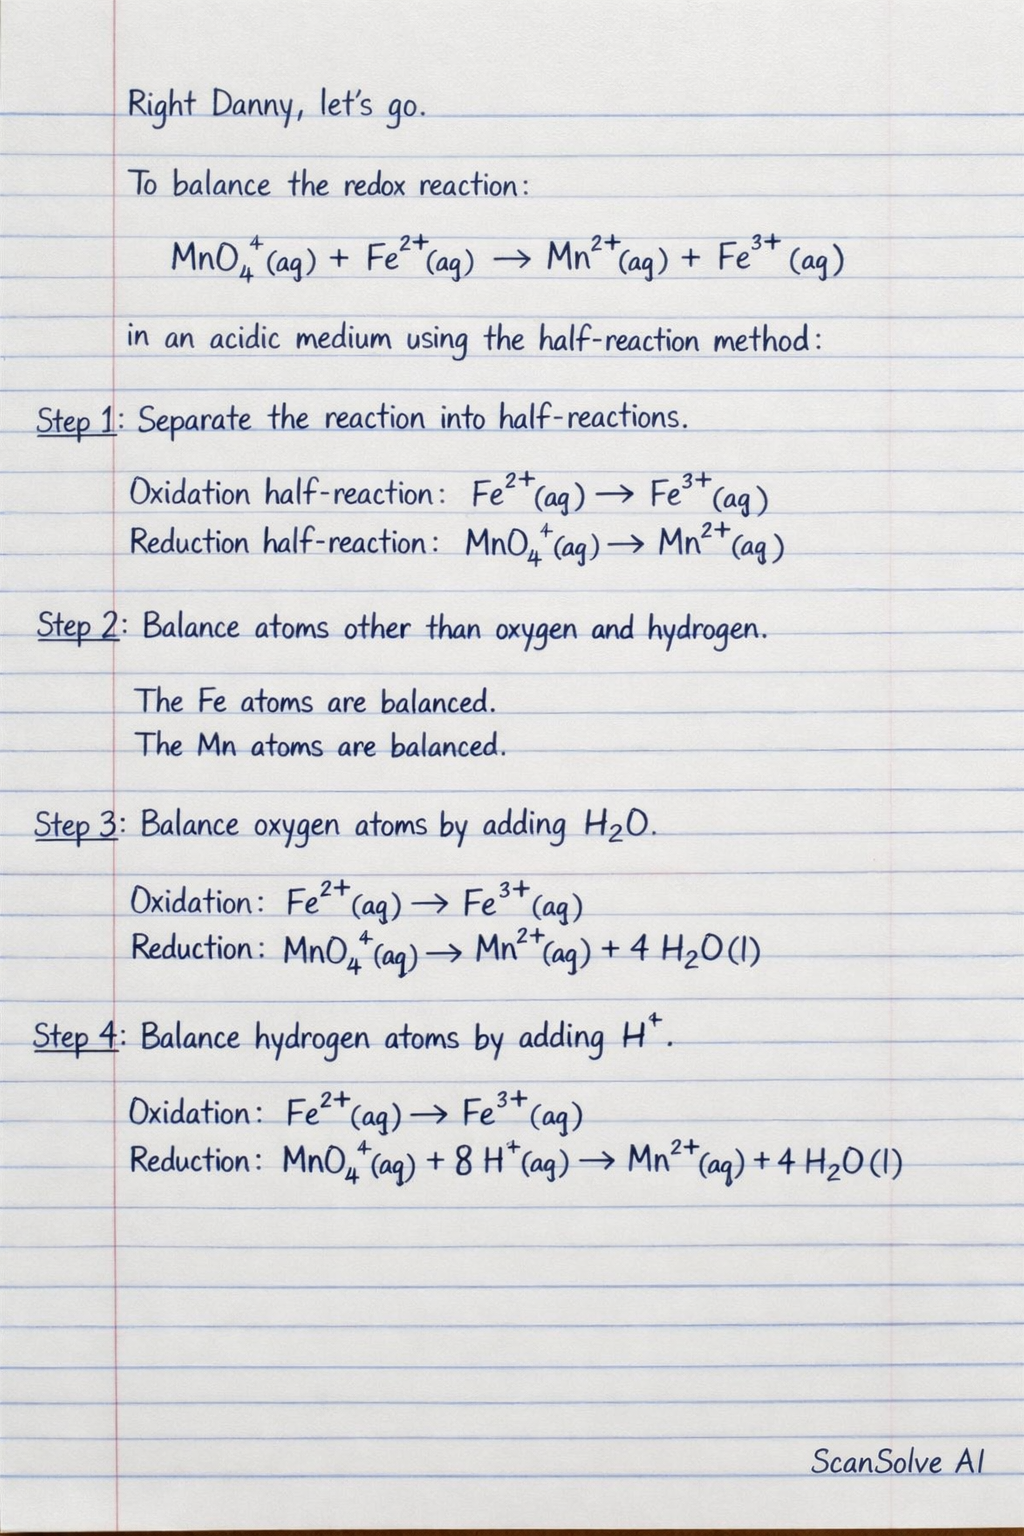 Right Danny, let's go.
To balance the redox reaction:
MnO₄⁴(aq) + Fe²⁺(aq) → Mn²⁺(aq) + Fe³⁺ (aq)
in an acidic medium using the half-reaction method:
Step 1: Separate the reaction into half-reactions.
Oxidation half-reaction: Fe²⁺(aq) → Fe³⁺(aq)
Reduction half-reaction: MnO₄⁺(aq) → Mn²⁺(aq)
Step 2: Balance atoms other than oxygen and hydrogen.
The Fe atoms are balanced.
The Mn atoms are balanced.
Step 3: Balance oxygen atoms by adding H₂O.
Oxidation: Fe²⁺(aq) → Fe³⁺(aq)
Reduction: MnO₄⁴(aq) → Mn²⁺(aq) + 4 H₂O(l)
Step 4: Balance hydrogen atoms by adding H⁺.
Oxidation: Fe²⁺(aq) → Fe³⁺(aq)
Reduction: MnO₄⁴(aq) + 8 H⁺(aq) → Mn²⁺(aq) + 4 H₂O(l)
ScanSolve AI